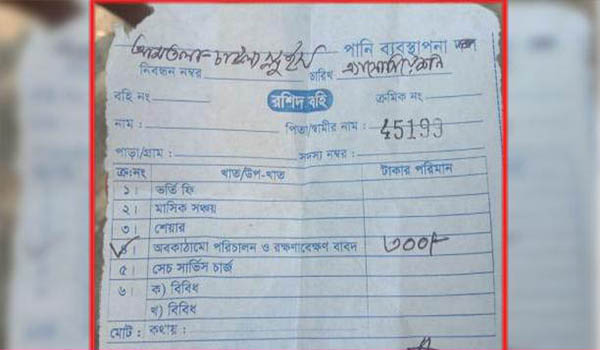 আমতলা-চাওলা স্লুইস পানি ব্যবস্থাপনা দল
এ্যাসোসিয়েশন
নিবন্ধন নম্বর তারিখ
বহি নং রশিদ বহি ক্রমিক নং
নাম : পিতা/স্বামীর নাম : 45193
পাড়া/গ্রাম : সদস্য নম্বর :
ক্রঃনং খাত/উপ-খাত টাকার পরিমান
১। ভর্তি ফি
২। মাসিক সঞ্চয়
৩। শেয়ার
৪। অবকাঠামো পরিচালন ও রক্ষণাবেক্ষণ বাবদ ৩০০/-
৫। সেচ সার্ভিস চার্জ
৬। ক) বিবিধ
খ) বিবিধ
মোট : কথায় :